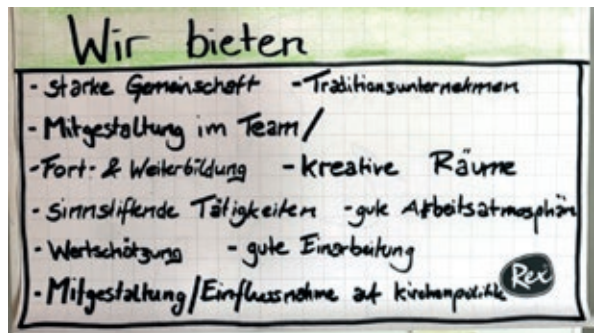 Wir bieten
- starke Gemeinschaft - Traditionsunternehmen
- Mitgestaltung im Team/
- Fort- & Weiterbildung - kreative Räume
- Sinnstiftende Tätigkeiten - gute Arbeitsatmosphär
- Wertschätzung - gute Einarbeitung
- Mitgestaltung/Einflussnahme auf kirchenpolitik
Rex